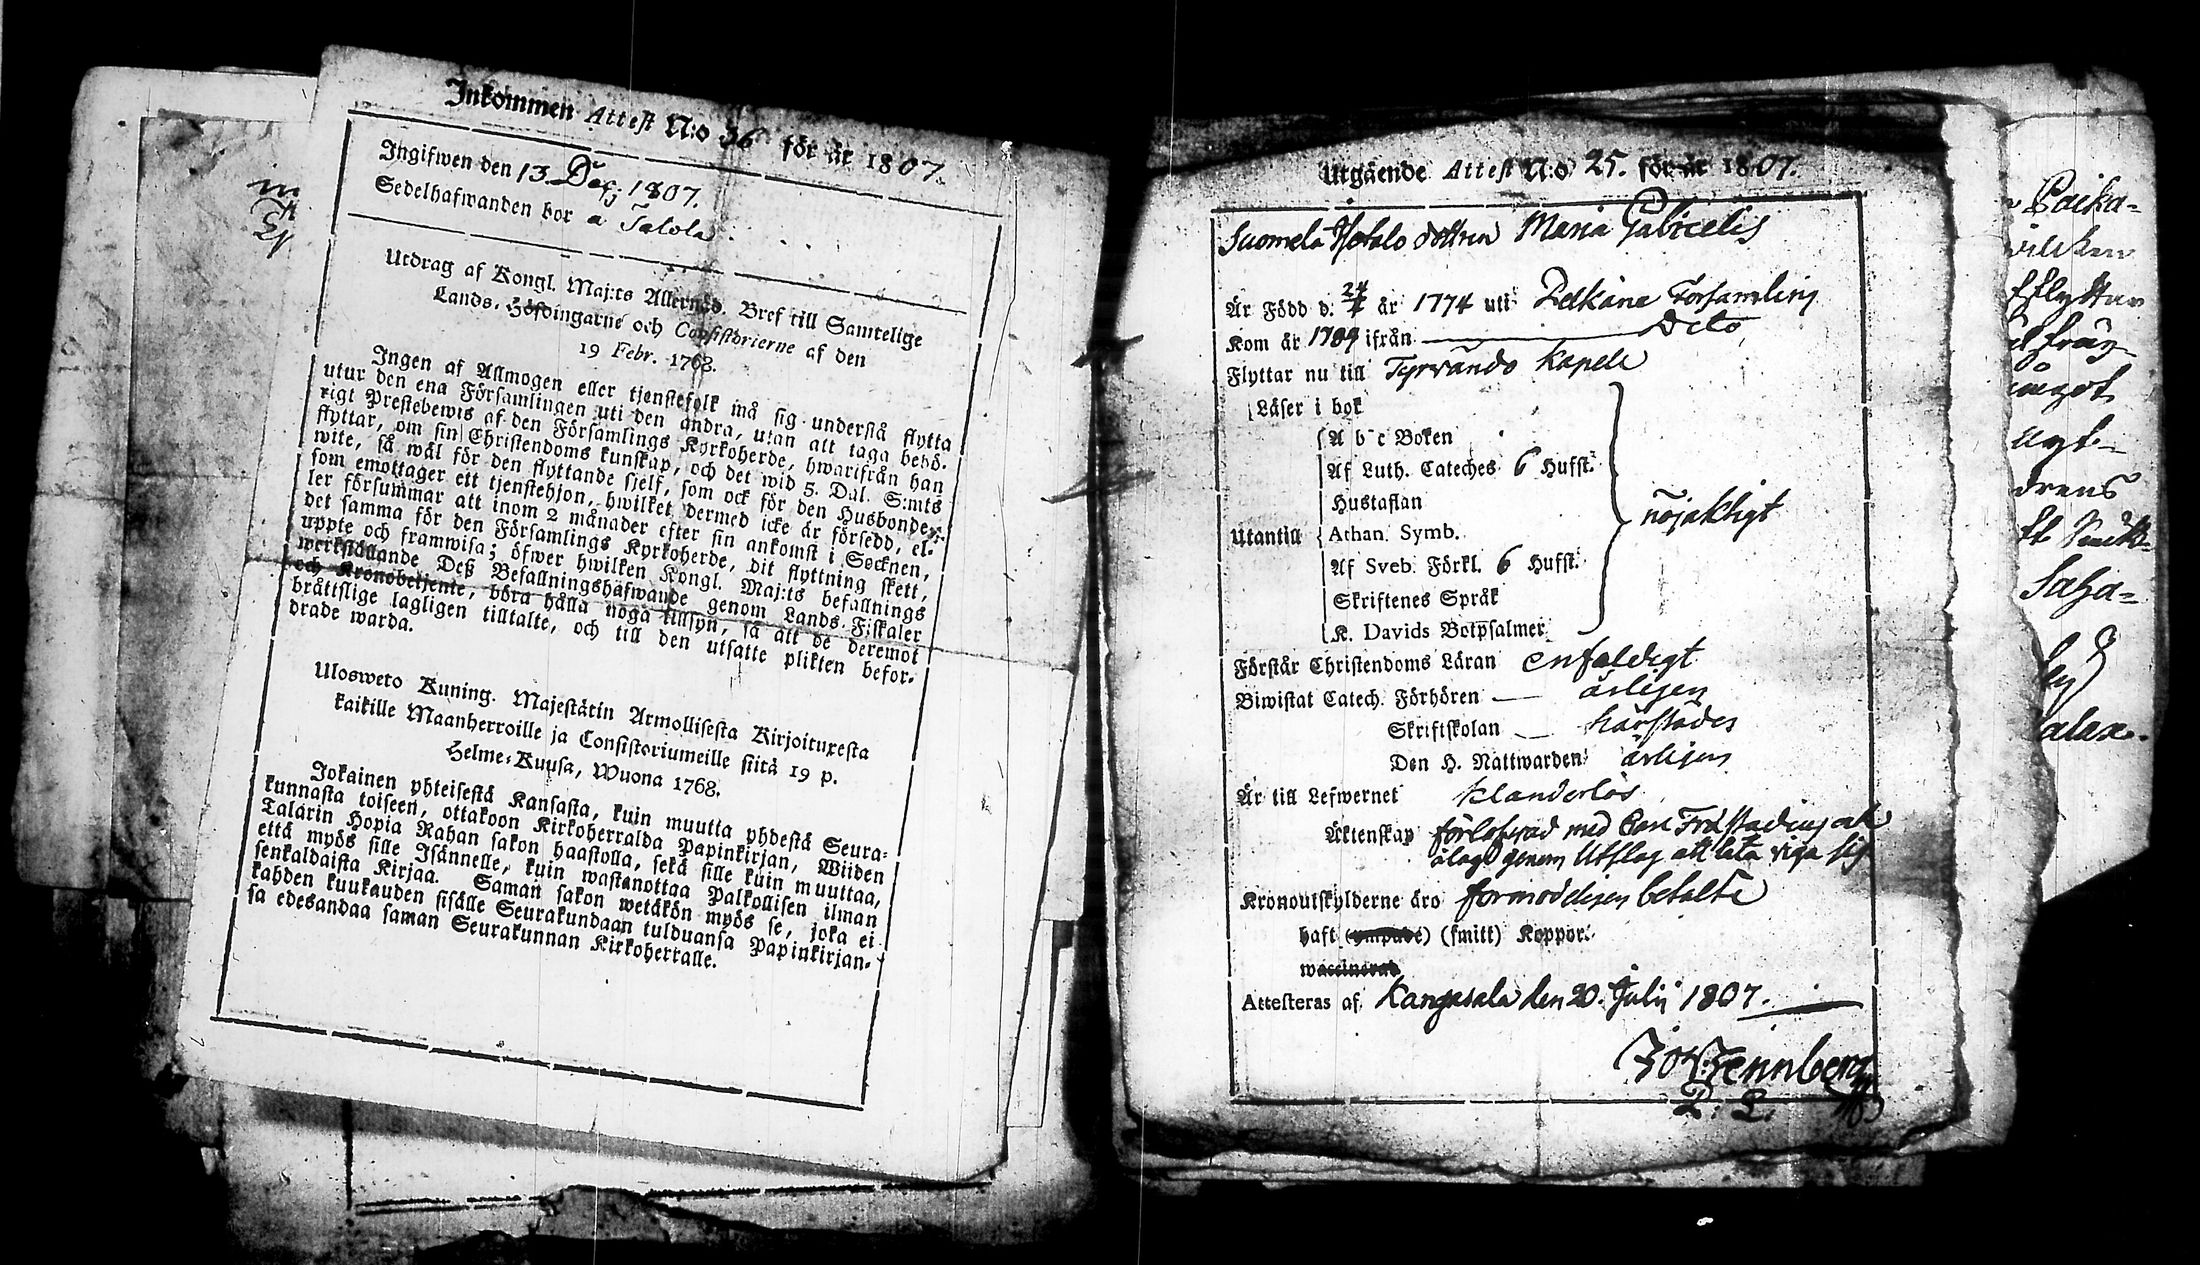 Inkommen Attest N:o 36 för år 1807.
Ingifwen den 13 Dec; 1807.
Sedelhafwanden bor a Talola
Utdrag af Kongl. Maj:ts Allernåd. Bref till Samtelige
Lands-Höfdingarne och Consistorierne af den
19 Febr. 1768.
Ingen af Allmogen eller tjenstefolk må sig understå flytta
utur den ena Församlingen uti den andra, utan att taga behö-
rigt Prestebewis af den Församlings Kyrkoherde, hwarifrån han
flyttar, om sin Christendoms kunskap, och det wid 5. Dal. S:mts
wite, så wäl för den flyttande sjelf, som ock för den Husbonde,
som emottager ett tjenstehjon, hwilket dermed icke är försedd, el-
ler försummar att inom 2 månader efter sin ankomst i Socknen,
det samma för den Församlings Kyrkoherde, dit flyttning skett,
uppte och framwisa; öfwer hwilken Kongl. Maj:ts befallnings
werkställande Deß Befallningshafwande genom Lands-Fiskaler
och Kronobetjente, böra hålla noga tillsyn, så att de deremot
bråttslige lagligen tilltalte, och till den utsatte plikten befor-
drade warda.
Ulosweto Kuning. Majestätin Armollisesta Kirjoituxesta
kaikille Maanherroille ja Consistoriumeille siitä 19 p.
Helme-Kuusa, Wuona 1768.
Jokainen yhteisestä Kansasta, kuin muutta yhdestä Seura-
kunnasta toiseen, ottakoon Kirkoherralda Papinkirjan, Wiiden
Talarin Hopia Rahan sakon haastolla, sekä sille kuin muuttaa,
että myös sille Isännelle, kuin wastanottaa Palkollisen ilman
senkaldaista Kirjaa. Saman sakon wetäkön myös se, joka ei
kahden kuukauden sisälle Seurakundaan tulduansa Papinkirjan-
sa edesandaa saman Seurakunnan Kirkoherralle.
Utgående Attest N:o 25. för år 1807.
Suomela Hotalo dottren Maria Gabrielis
Är Född d. 24/4 år 1774 uti Pelkäne Församling
Kom år 1789 ifrån Dito
Flyttar nu till Tyrvändo Kapell
Läser i bok
A b c Boken
Af Luth. Cateches 6 Hufst.
Hustaflan
Utantill Athan. Symb. nöjaktigt
Af Sveb. Förkl. 6 Hufst.
Skriftenes Språk
K. Davids Botpsalmer
Förstår Christendoms Läran enfaldigt
Biwistat Catech. Förhören årligen
Skriftskolan härstädes
Den H. Nattwarden årligen
Är till Lefwernet klanderlös
Äktenskap förlofwad med Carl Fristadius och
ålagd genom Utslag att låta viga sig
Kronoutskylderne äro formodeligen betalte
haft (ympade) (smitt) Koppor.
waccinerad
Attesteras af Kangasala den 20. Julij 1807.
Joh. Tennberg
P. L.
n Paika-
vilken
fflyttar
frän
något
drens
Saha-